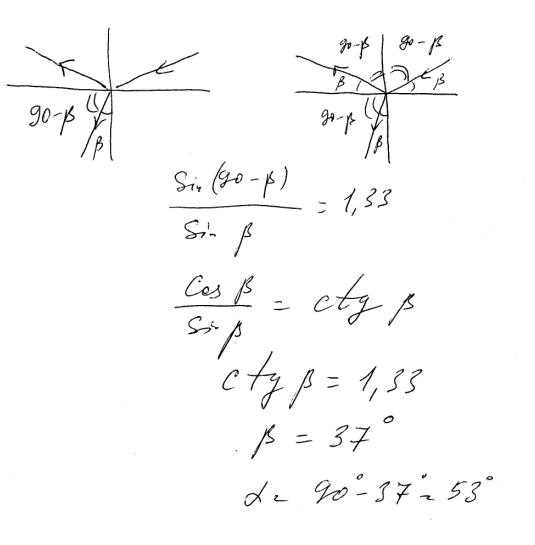 90-β 90-β
β β
90-β 90-β
β β
Sin (90-β)
Sin β
= 1,33
Cos β
Sin β
= ctg β
ctg β = 1,33
β = 37°
α = 90° - 37° = 53°